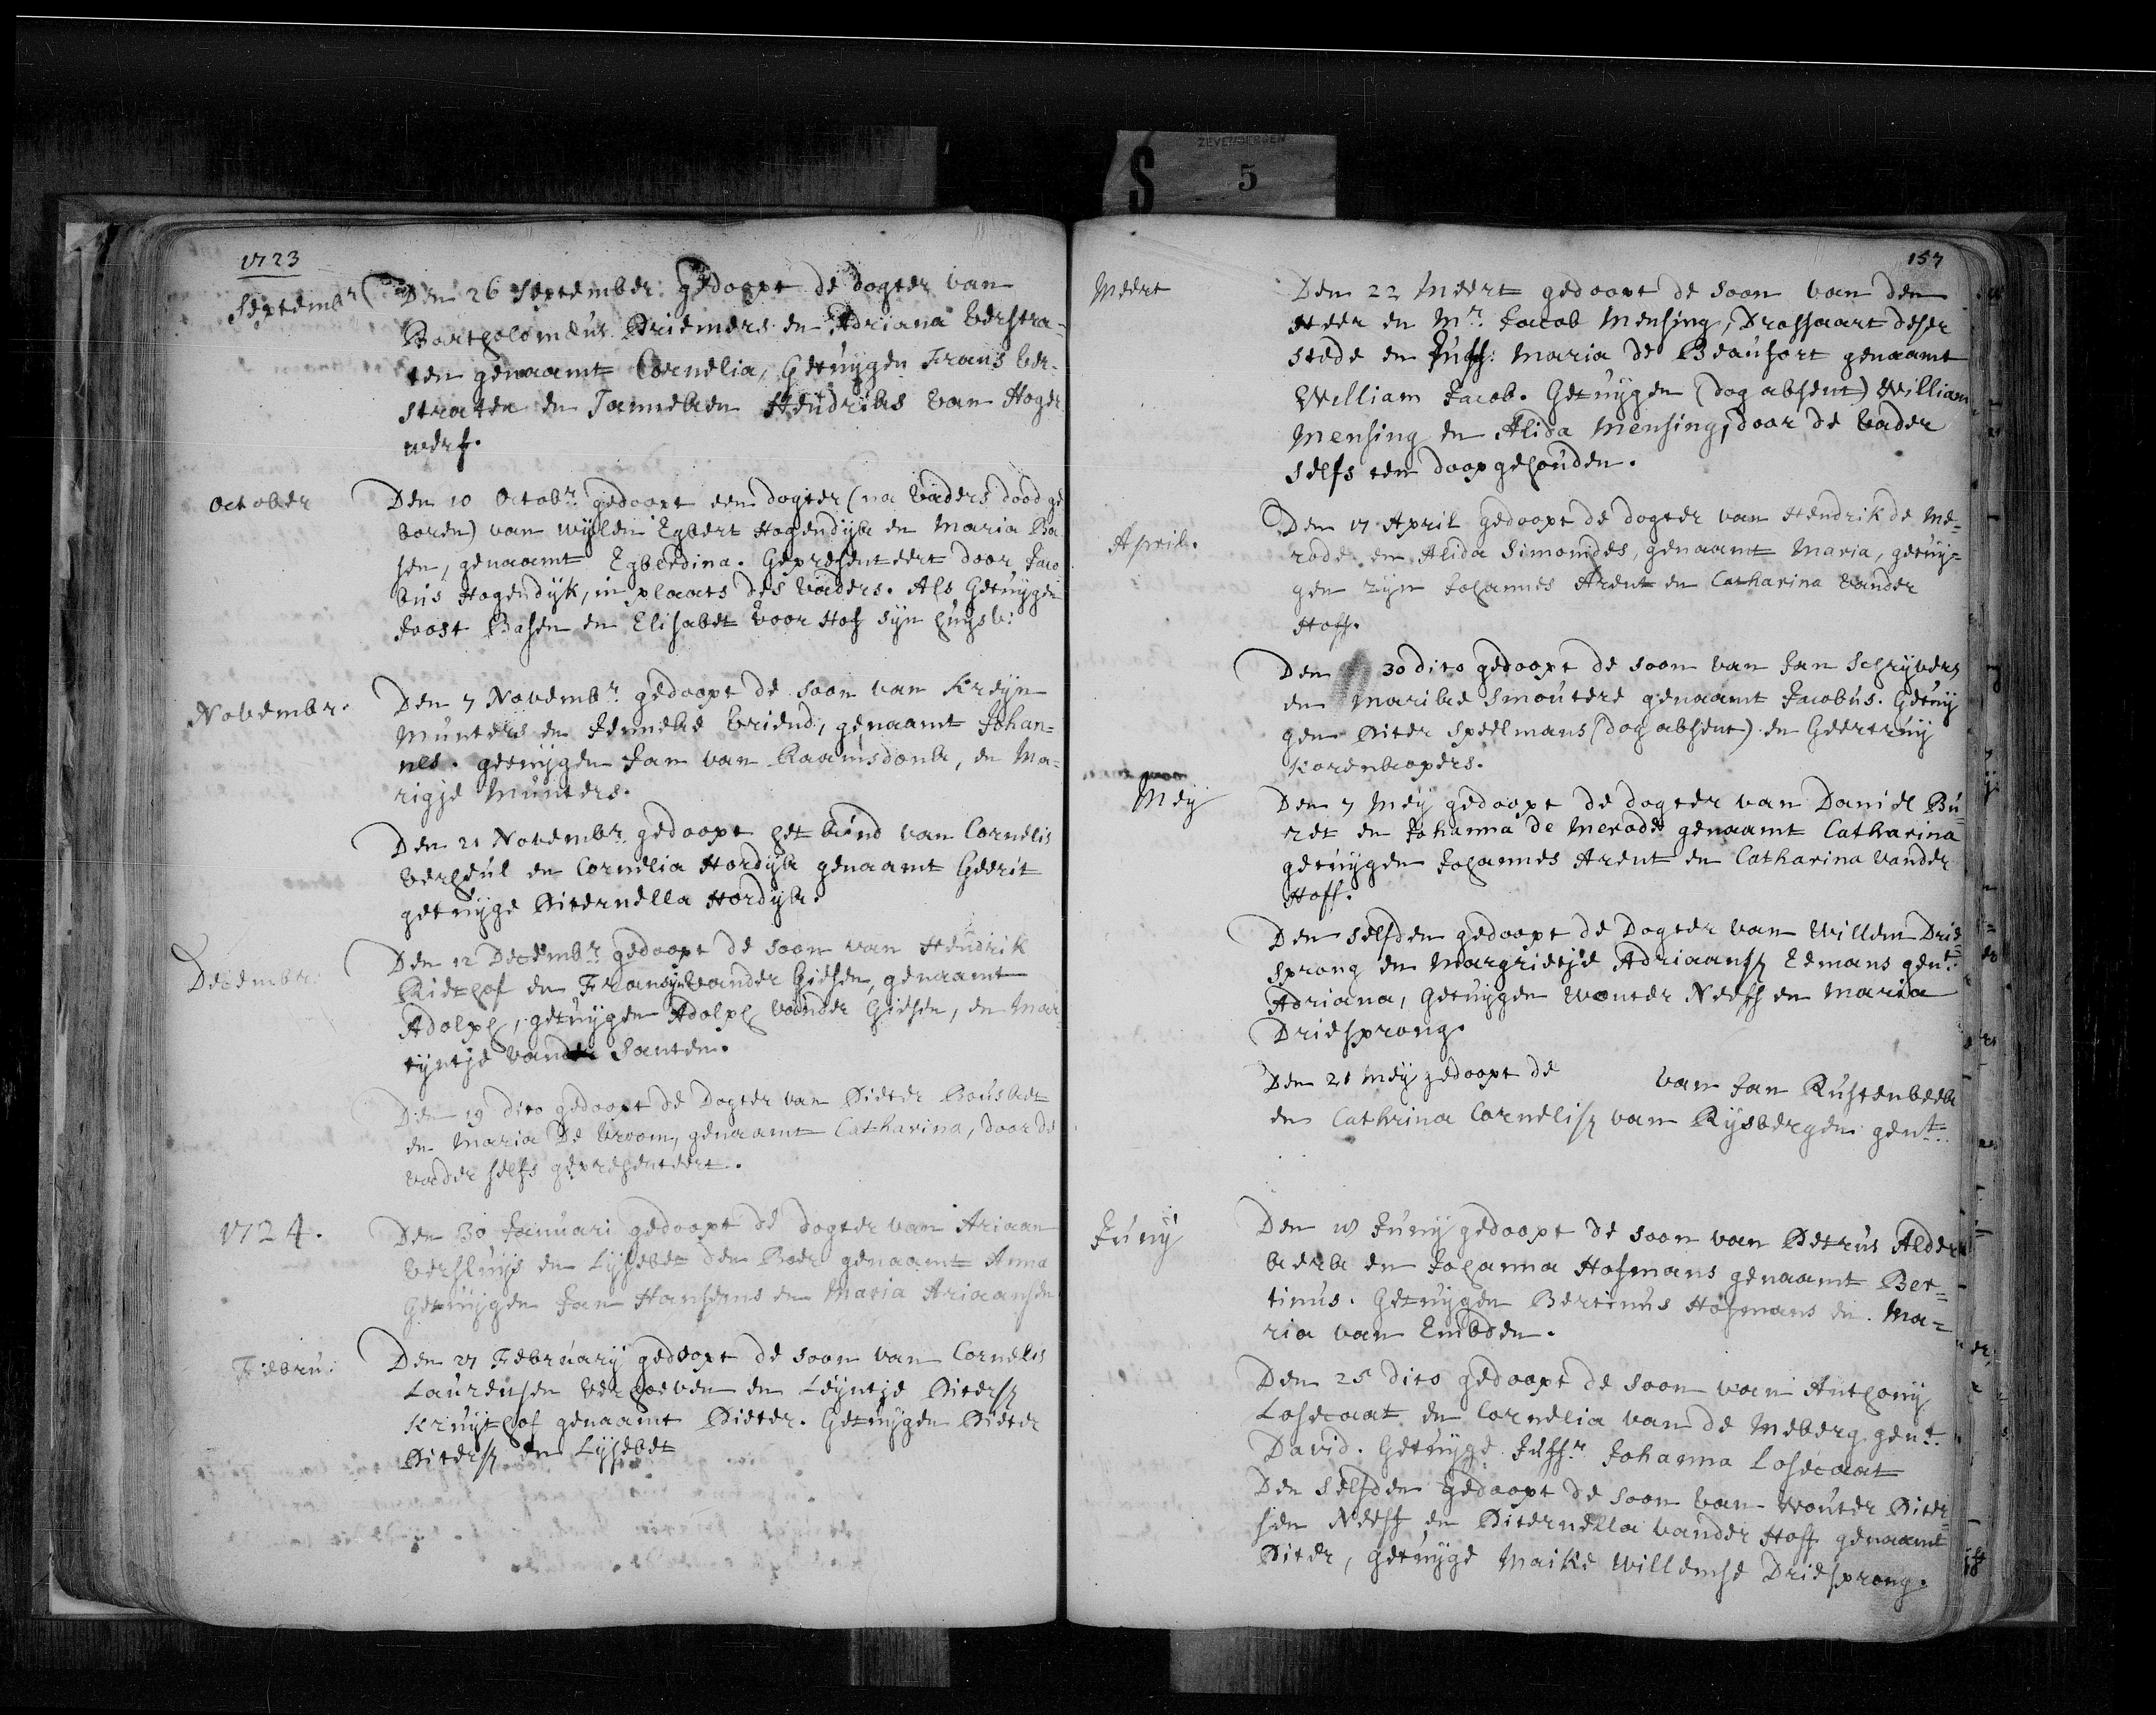 ZEVENBERGEN
S 5
1723
Septembr
Den 26 September gedoopt de dogter van
Bartholomeus Driemers en Adriana Verstra-
ten genaamt Cornelia, Getuygen Frans Ver-
straten en Janneken Hendriks van Hoger
werf.
October
Den 10 Octobr. gedoopt een dogter (na Vaders dood ge
boren) van wylen Egbert Hogendyk en Maria Ba
sen, genaamt Egberdina. Gepresenteert door Jaco
bus Hogendyk, in plaats des Vaders. Als Getuygen
Joost Basen en Elisabet Voor Hof syn huysv:
Novembr.
Den 7 Novembr. gedoopt de soon van Kreyn
Munters en Jenneke Vriend, genaamt Johan=
nes. getuygen Jan van Raamsdonk, en Ma=
rigje Munters.
Den 21 Novembr. gedoopt het kind van Cornelis
Verheul en Cornelia Hordyk genaamt Geerit
getuyge Piternella Hordyk.
Decembr:
Den 12 Decembr. gedoopt de soon van Hendrik
Riethof en Fransyn vander Giesen, genaamt
Adolph, getuygen Adolph vander Giesen, en Mar
tyntje van Santen.
Den 19 dito gedoopt de Dogter van Pieter Bousket
en Maria De Vroom, genaamt Catharina, door de
vader selfs gepresenteert.
1724.
Den 30 Januari gedoopt de dogter van Ariaan
Versluys en Lysebet den Boer genaamt Anna
Getuygen Jan Hansems en Maria Ariaansen
Febru:
Den 27 February gedoopt de soon van Cornelis
Laurensen Verhoeven en Leyntje Piters
Kruythof genaamt Pieter. Getuygen Pieter
Piters en Lysebet
157
Meert
Den 22 Meert gedoopt de soon van den
Heer en Mr. Jacob Mensing, Drossaart deser
stede en Juff: Maria de Beaufort genaamt
William Jacob. Getuygen (dog absent) William
Mensing en Alida Mensing, door de Vader
selfs ten doop gehouden.
April.
Den 17 April gedoopt de dogter van Hendrik de Me=
rode en Alida Simonides, genaamt Maria, getuy=
gen zyn Johannes Arent en Catharina vander
Hoff.
Den 30 dito gedoopt de soon van Jan Schryvers
en Marike Smouters genaamt Jacobus. Getuy
gen Piter Speelmans (dog absent) en Geertruy
Korenkopers.
Mey
Den 7 Mey gedoopt de dogter van Daniel Bu=
ret en Johanna de Merode genaamt Catharina
getuygen Johannes Arent en Catharina vander
Hoff.
Den selfden gedoopt de Dogter van Willem Drie=
sprong en Margrietje Adriaans Eemans gent.
Adriana, getuygen Wouter Neeff en Maria
Driesprong.
Den 21 Mey gedoopt de van Jan Rustenbeek
en Cathrina Cornelis van Rysbergen gent.
Juny
Den Juny gedoopt de soon van Petrus Alder
kerk en Johanna Hofmans genaamt Ber=
tinus. Getuygen Bertinus Hofmans en Ma=
ria van Embden.
Den 25 dito gedoopt de soon van Anthony
Losecaat en Cornelia van de Meberg gent.
David. Getuyge Juffr. Johanna Losecaat
Den selfden gedoopt de soon van Wouter Piter=
sen Neeff en Piternella vander Hoff genaamt
Piter, getuyge Maike Willemse Driesprong.